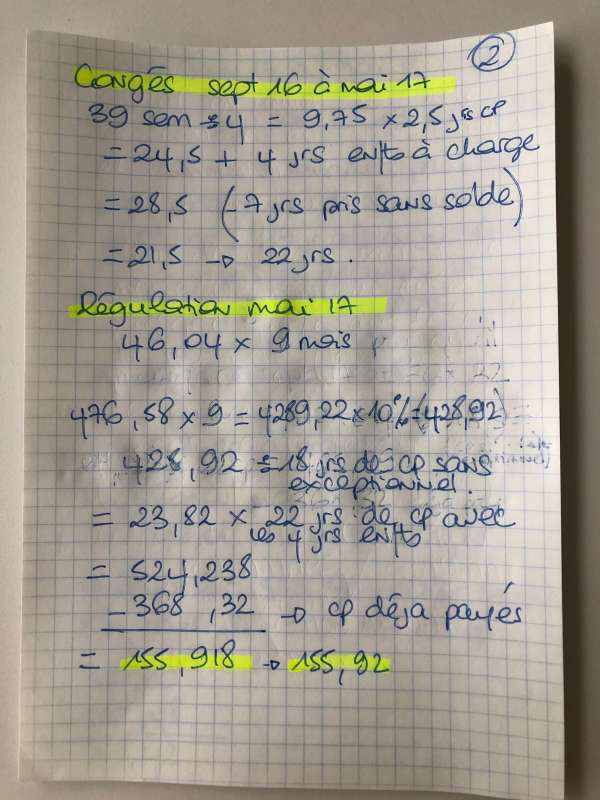 2
Congés sept 16 à mai 17
39 sem ÷ 4 = 9,75 x 2,5 jrs cp
= 24,5 + 4 jrs enfts à charge
= 28,5 (-7 jrs pris sans solde)
= 21,5 → 22 jrs.
Régulation mai 17
46,04 x 9 mois
476,58 x 9 = 4289,22 x 10% = (428,92)
428,92 ÷ 18 jrs de cp sans
exceptionnel.
= 23,82 x 22 jrs de cp avec
les 4 jrs enfts
= 524,238
- 368,32 → cp déja payés
= 155,918 → 155,92